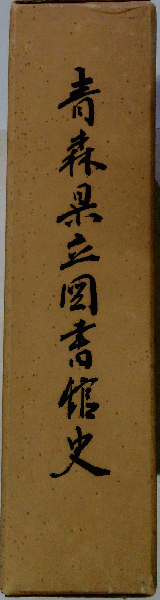 青森県立図書館史